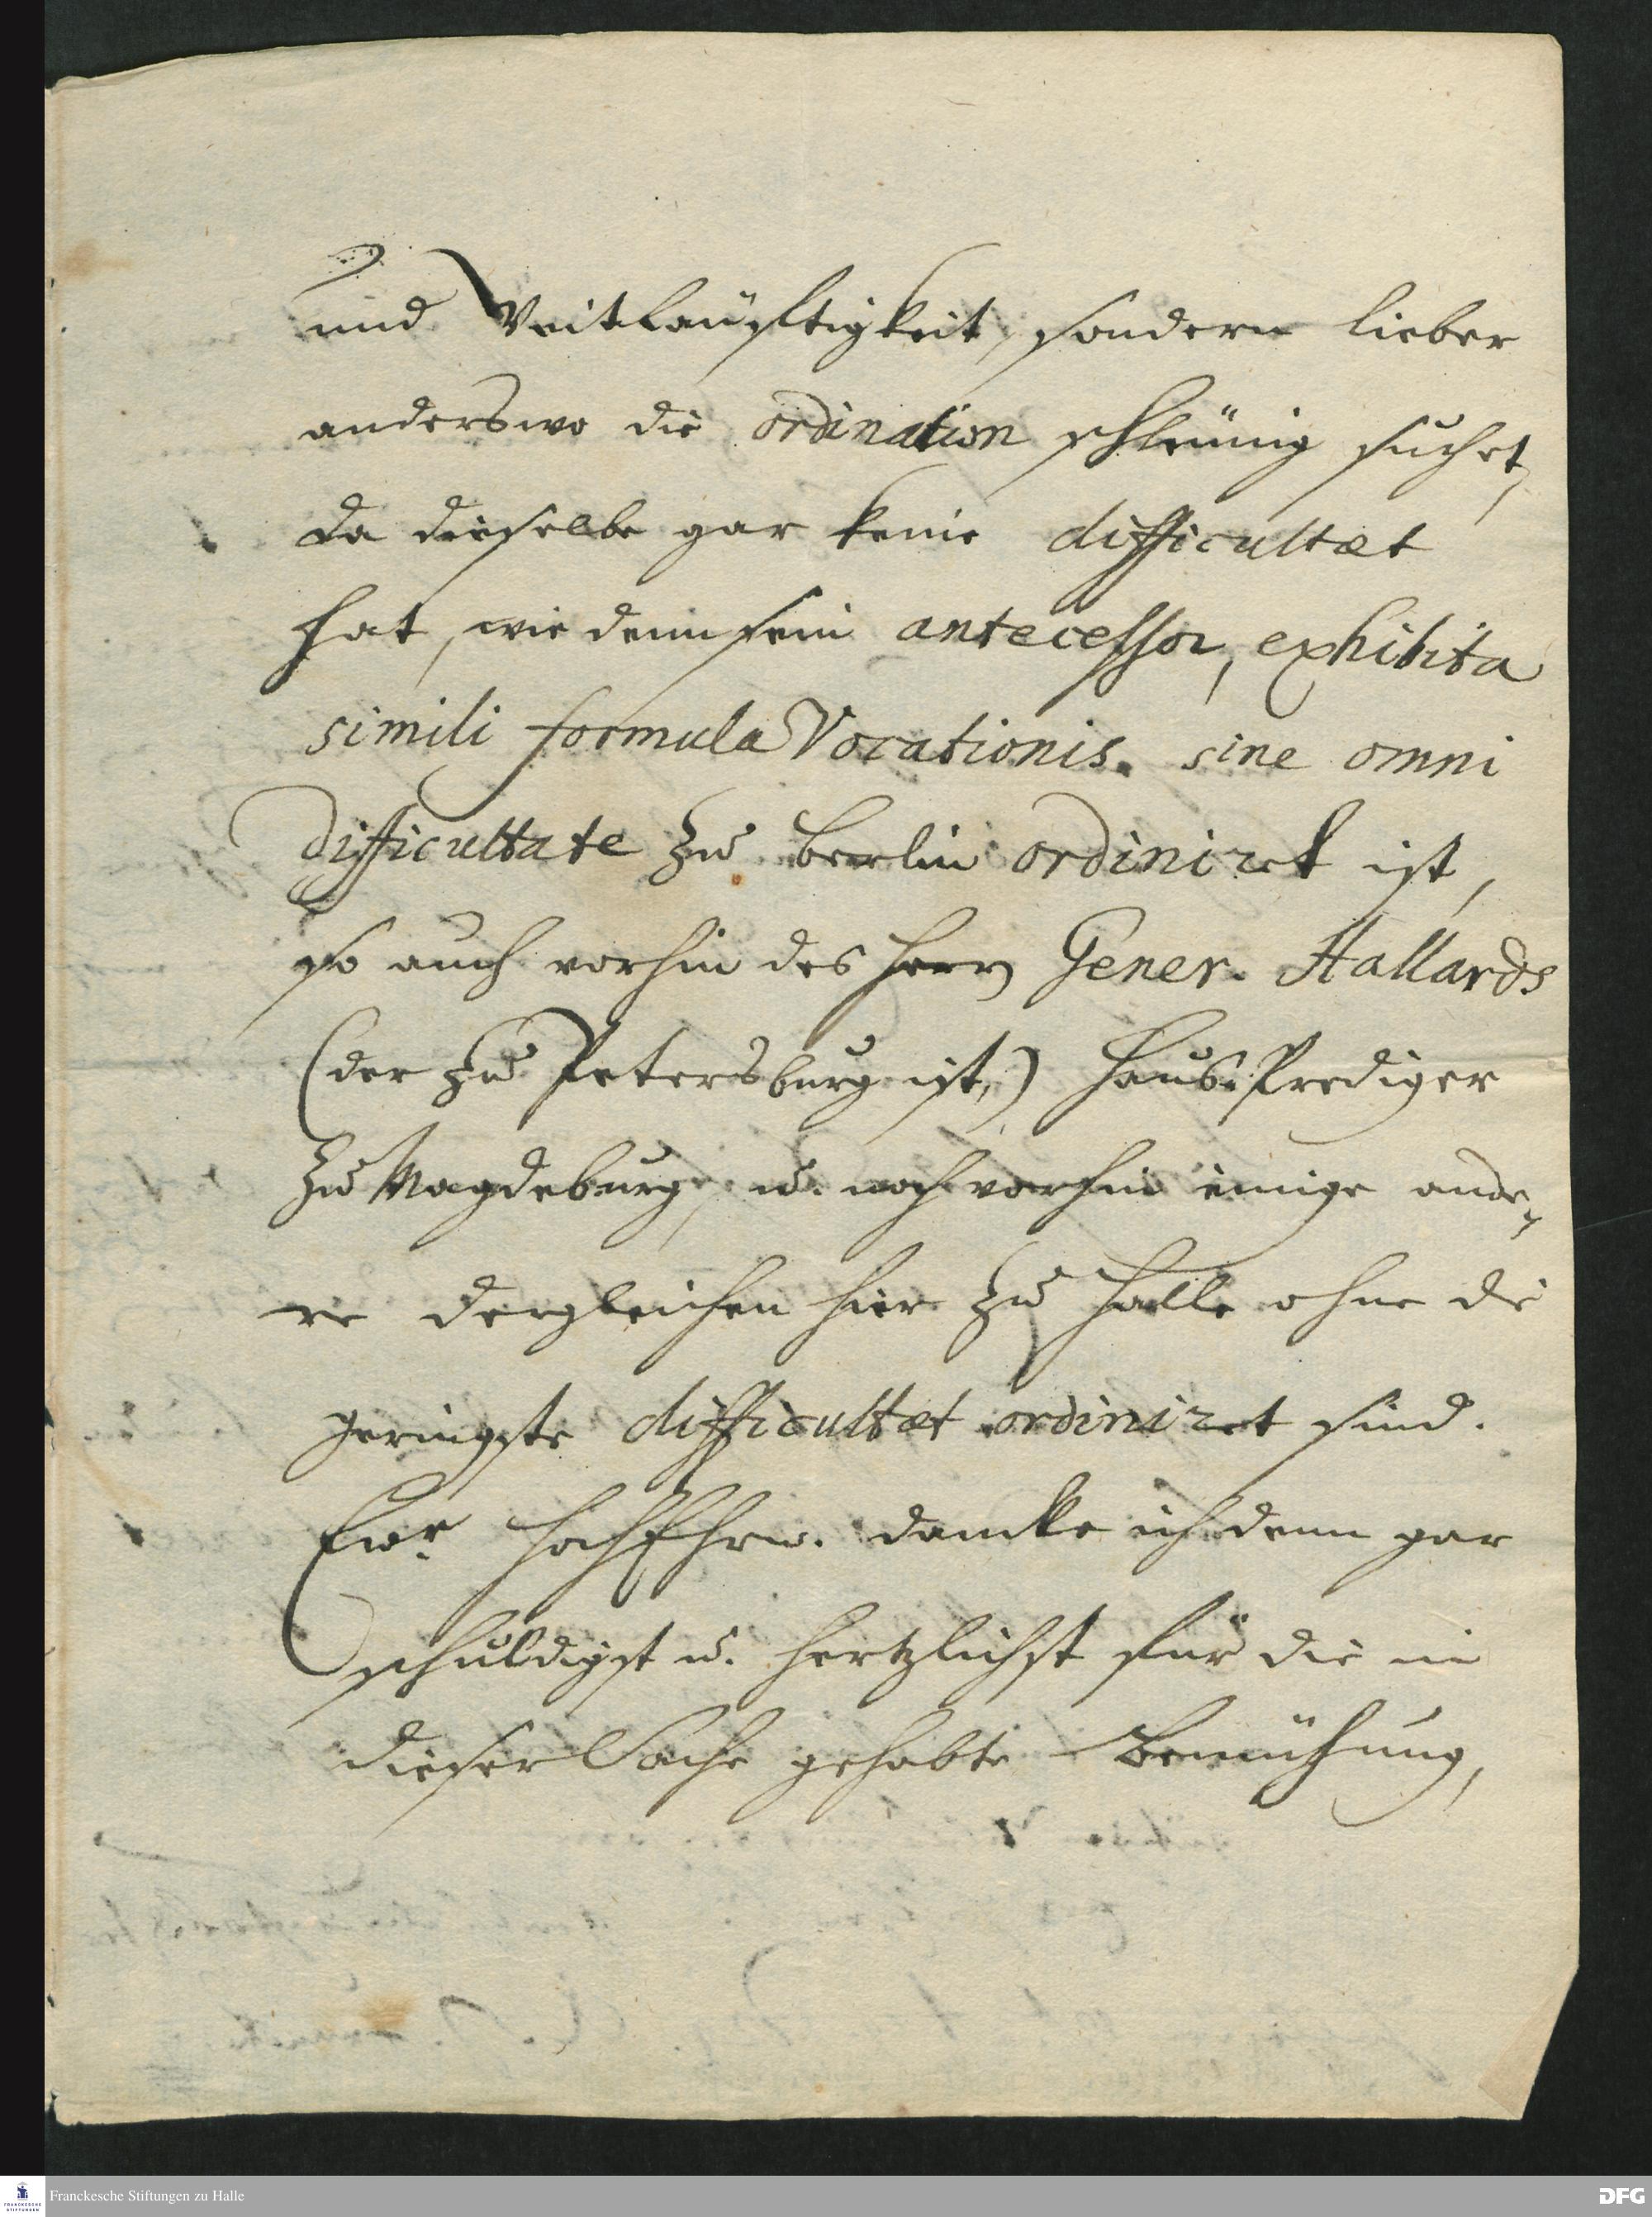 und Weitläufftigkeit, sondern lieber
anderswo die ordination schleünig suchet,
da dieselbe gar keine difficultæt
hat, wie denn sein antecessor, exhibita
simili formula Vocationis. sine omni
difficultate zu Berlin ordiniret ist,
so auch vorhin des Herrn Gener. Hallards
(der zu Petersburg ist,) Haus-Prediger
zu Magdeburg, u. noch vorhin einige ande-
re dergleichen hier zu Halle ohne die
geringste difficultæt ordiniret sind.
Ewr. HochEhrw. dancke ich denn gar
schuldigst u. hertzlichst für die in
dieser Sache gehabte Bemühung,
Franckesche Stiftungen zu Halle
FRANCKESCHE
STIFTUNGEN
DFG